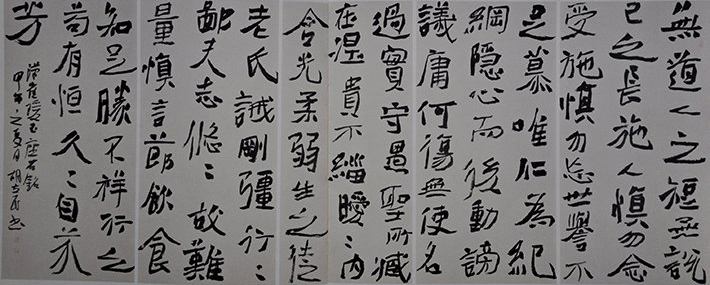 無道人之短無說
己之長施人慎勿念
受施慎勿忘世譽不
足慕唯仁為紀
綱隱心而後動謗
議庸何傷無使名
過實守愚聖所臧
在涅貴不緇曖〻內
含光柔弱生之徒
老氏誡剛彊行〻
鄙夫志悠〻故難
量慎言節飲食
知足勝不祥行之
苟有恒久〻自芬
芳
漢崔瑗座右銘
甲午之夏月胡书